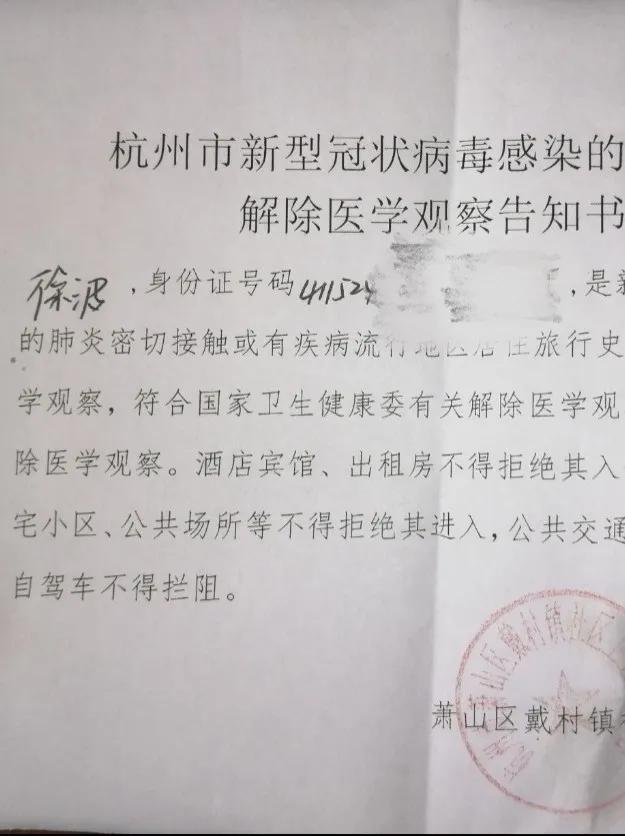 杭州市新型冠状病毒感染的
解除医学观察告知书
徐波,身份证号码411524,是新
的肺炎密切接触或有疾病流行地区居住旅行史
学观察,符合国家卫生健康委有关解除医学观
除医学观察。酒店宾馆、出租房不得拒绝其入
宅小区、公共场所等不得拒绝其进入,公共交通
自驾车不得拦阻。
萧山区戴村镇社区
萧山区戴村镇